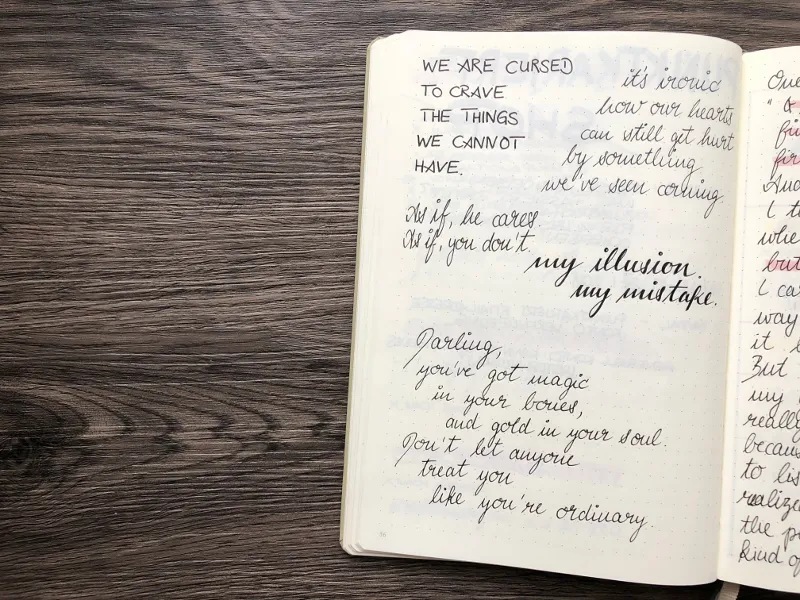 WE ARE CURSED
TO CRAVE
THE THINGS
WE CANNOT
HAVE.
it's ironic
how our hearts
can still get hurt
by something
we've seen coming
As if, he cares.
As if, you don't.
my illusion.
my mistake.
Darling,
you've got magic
in your bones,
and gold in your soul.
Don't let anyone
treat you
like you're ordinary.
One
And
I
whe
but
I
way
it
But
my
really
becaus
to lis
realize
the
kind of